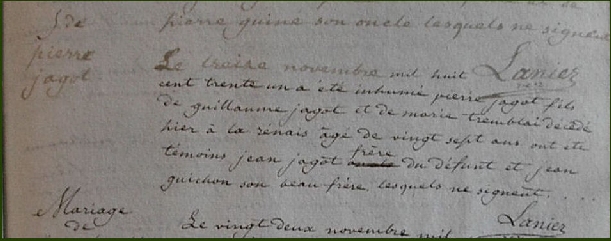 pierre guine son oncle lesquels ne signent
S. de
pierre
jagot
Lanier
Le treize novembre mil huit
cent trente un a été inhumé pierre jagot fils
de guillaume jagot et de marie tremblai décédé
hier à la rénais âgé de vingt sept ans ont été
témoins jean jagot frère du défunt et jean
guichon son beau frère, lesquels ne signent. . . .
Lanier
Mariage
de
Le vingt deux novembre mil